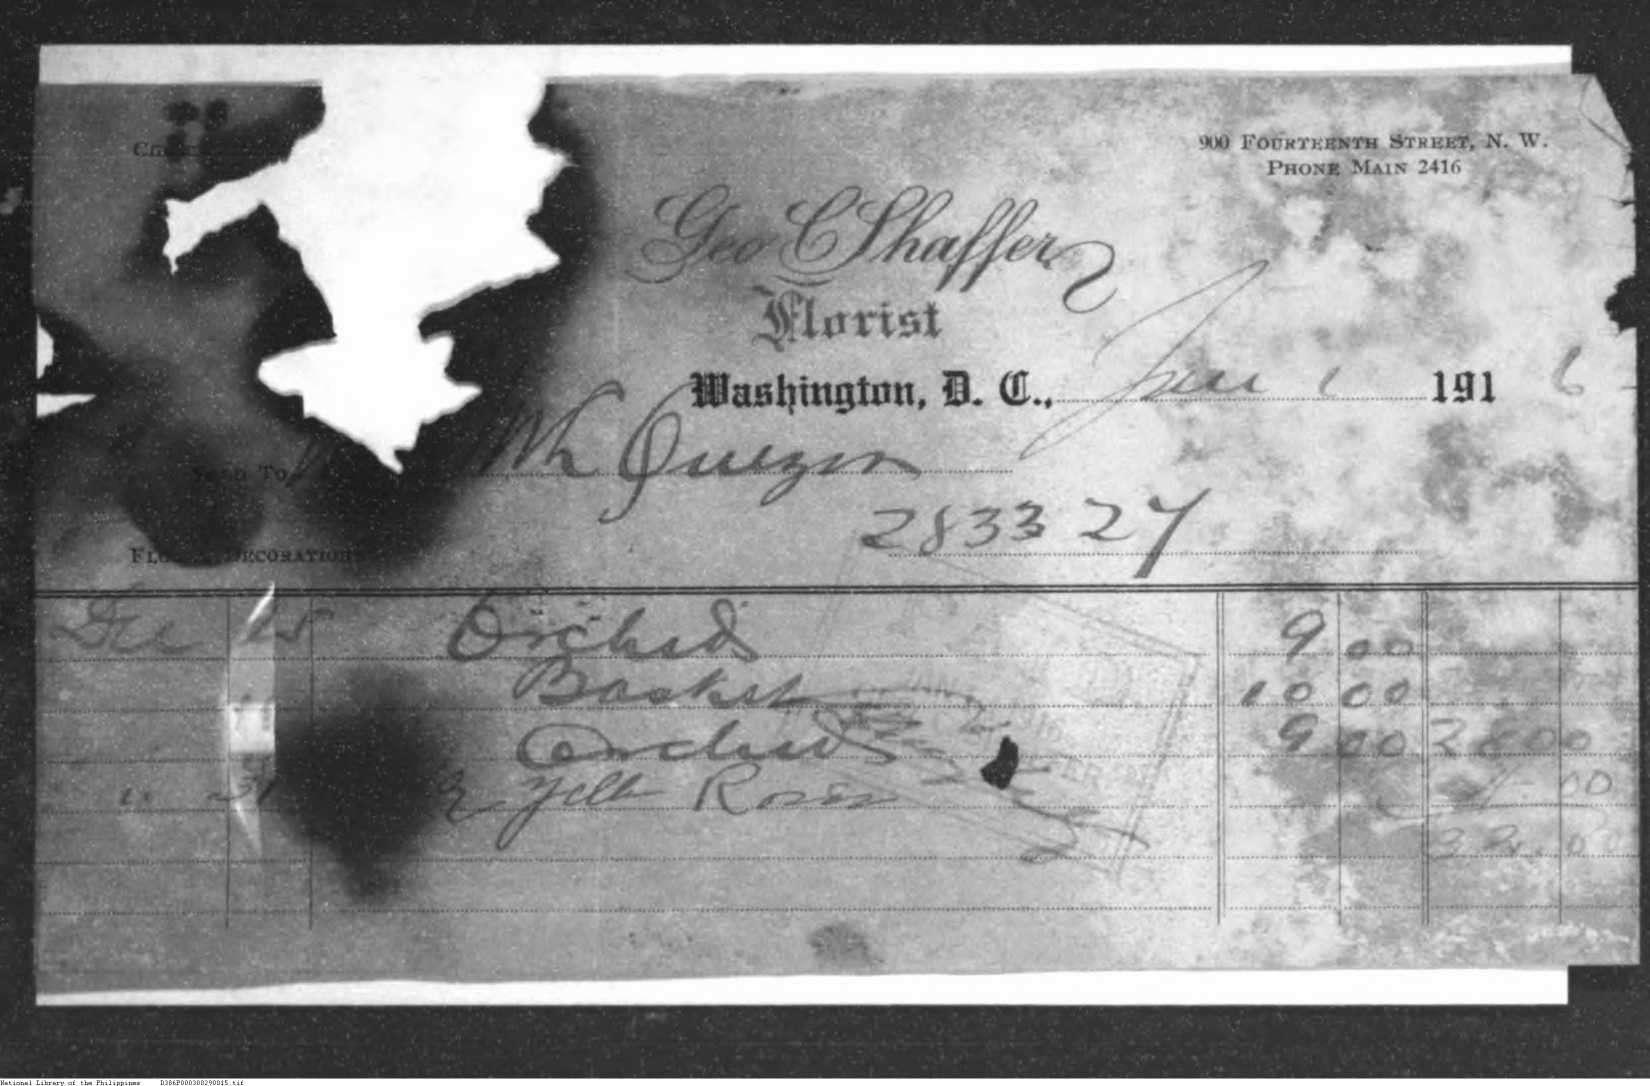 900 Fourteenth Street, N. W.
Phone Main 2416
Geo C Shaffer
Florist
Washington, D. C., Jan 1 1916
To
Quezon
2833 27
Decorations
Dec 25 Orchids 9 00
Basket 10 00
Orchids 9 00 28 00
" 31 Roses 4.00
32.00
National Library of the Philippines D386P000300290015.tif